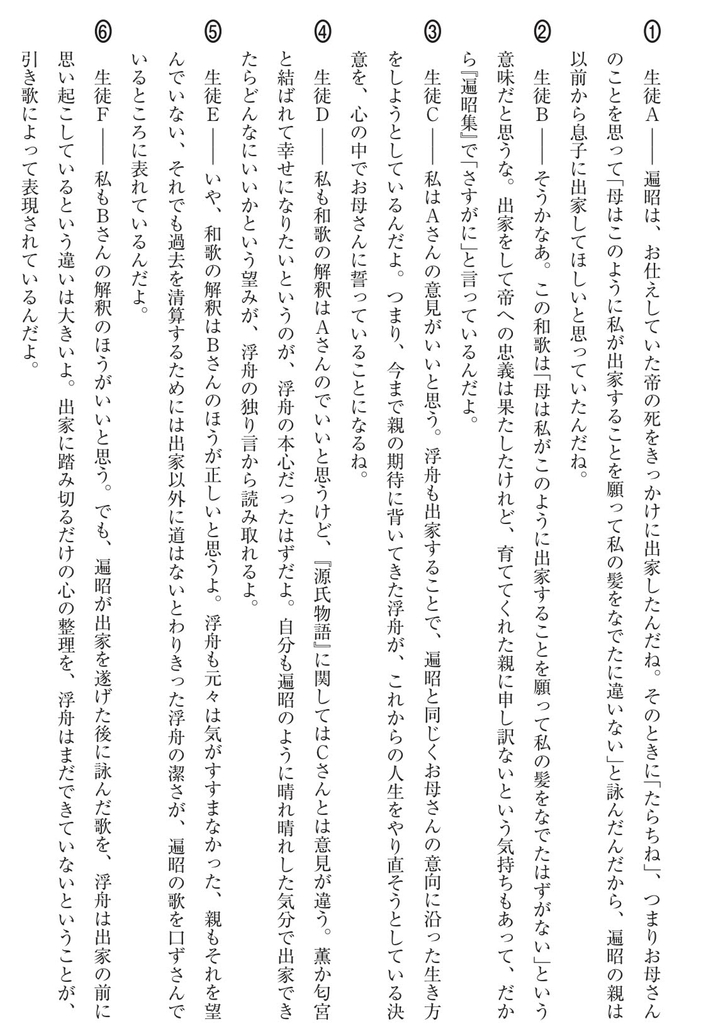 ① 生徒A――遍昭は、お仕えしていた帝の死をきっかけに出家したんだね。そのときに「たらちね」、つまりお母さん
のことを思って「母はこのように私が出家することを願って私の髪をなでたに違いない」と詠んだんだから、遍昭の親は
以前から息子に出家してほしいと思っていたんだね。
② 生徒B――そうかなあ。この和歌は「母は私がこのように出家することを願って私の髪をなでたはずがない」という
意味だと思うな。出家をして帝への忠義は果たしたけれど、育ててくれた親に申し訳ないという気持ちもあって、だか
ら『遍昭集』で「さすがに」と言っているんだよ。
③ 生徒C――私はAさんの意見がいいと思う。浮舟も出家することで、遍昭と同じくお母さんの意向に沿った生き方
をしようとしているんだよ。つまり、今まで親の期待に背いてきた浮舟が、これからの人生をやり直そうとしている決
意を、心の中でお母さんに誓っていることになるね。
④ 生徒D――私も和歌の解釈はAさんのでいいと思うけど、『源氏物語』に関してはCさんとは意見が違う。薫か匂宮
と結ばれて幸せになりたいというのが、浮舟の本心だったはずだよ。自分も遍昭のように晴れ晴れした気分で出家でき
たらどんなにいいかという望みが、浮舟の独り言から読み取れるよ。
⑤ 生徒E――いや、和歌の解釈はBさんのほうが正しいと思うよ。浮舟も元々は気がすすまなかった、親もそれを望
んでいない、それでも過去を清算するためには出家以外に道はないとわりきった浮舟の潔さが、遍昭の歌を口ずさんで
いるところに表れているんだよ。
⑥ 生徒F――私もBさんの解釈のほうがいいと思う。でも、遍昭が出家を遂げた後に詠んだ歌を、浮舟は出家の前に
思い起こしているという違いは大きいよ。出家に踏み切るだけの心の整理を、浮舟はまだできていないということが、
引き歌によって表現されているんだよ。